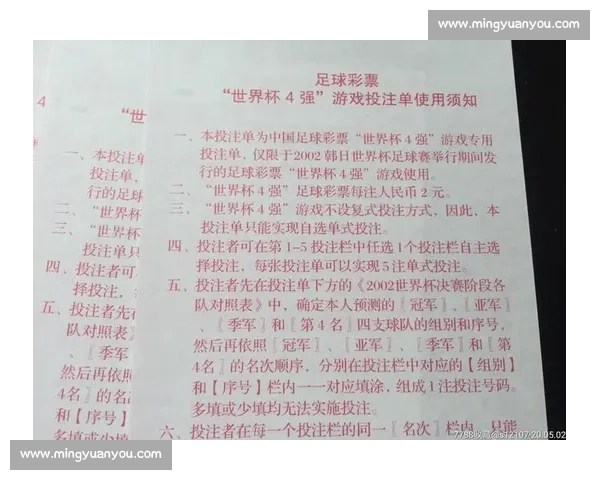 www.mingyuanyou.com
足球彩票
“世界杯 4 强”游戏投注单使用须知
一、本投注单为中国足球彩票“世界杯 4 强”游戏专用
投注单，仅限于2002 韩日世界杯足球赛举行期间发
行的足球彩票“世界杯 4 强”游戏使用。
二、“世界杯 4 强”足球彩票每注人民币 2 元。
三、“世界杯 4 强”游戏不设复式投注方式，因此，本
投注单只能实现自选单式投注。
四、投注者可在第 1–5 投注栏中任选 1个投注栏自主选
择投注，每张投注单可以实现 5 注单式投注。
五、投注者先在投注单下方的《2002世界杯决赛阶段各
队对照表》中，确定本人预测的〖冠军〗、〖亚军〗
、〖季军〗和〖第 4 名〗四支球队的组别和序号，
然后再依照〖冠军〗、〖亚军〗、〖季军〗和〖第
4名〗的名次顺序，分别在投注栏中对应的【组别】
和【序号】栏内一一对应填涂，组成 1注投注号码。
多填或少填均无法实施投注。
六、投注者在每一个投注栏的同一〖名次〗栏内，只能
4
“世
一、本投注单
投注单，
行的足球
二、“世界杯
三、“世界杯
投注单只
四、投注者可
择投注，
五、投注者先
队对照表》
、〖季军
然后再依照
4名〗的名
和【序号】
多填或少填
www.mingyuanyou.com